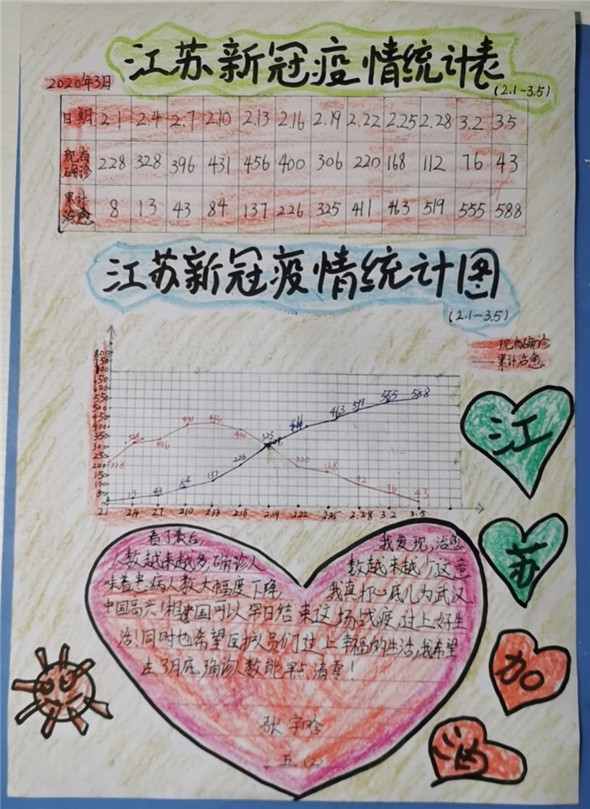 江苏新冠疫情统计表
(2.1-3.5)
2020年3日
日期 2.1 2.4 2.7 2.10 2.13 2.16 2.19 2.22 2.25 2.28 3.2 3.5
现有确诊 228 328 396 431 456 400 306 220 168 112 76 43
累计治愈 8 13 43 84 137 226 325 411 463 519 555 588
江苏新冠疫情统计图
(2.1-3.5)
现有确诊
累计治愈
江
苏
加
油
看了表后, 我发现,治愈
人数越来越多,确诊人 数越来越少,这意
味着患病人数大幅度下降, 我真打心底儿为武汉
中国高兴!祖国可以早日结束这场战疫,过上好生
活!同时也希望医护人员们过上幸福的生活,我希望
在3月底,确诊人数能早点清零!
张宇晗
五(2)